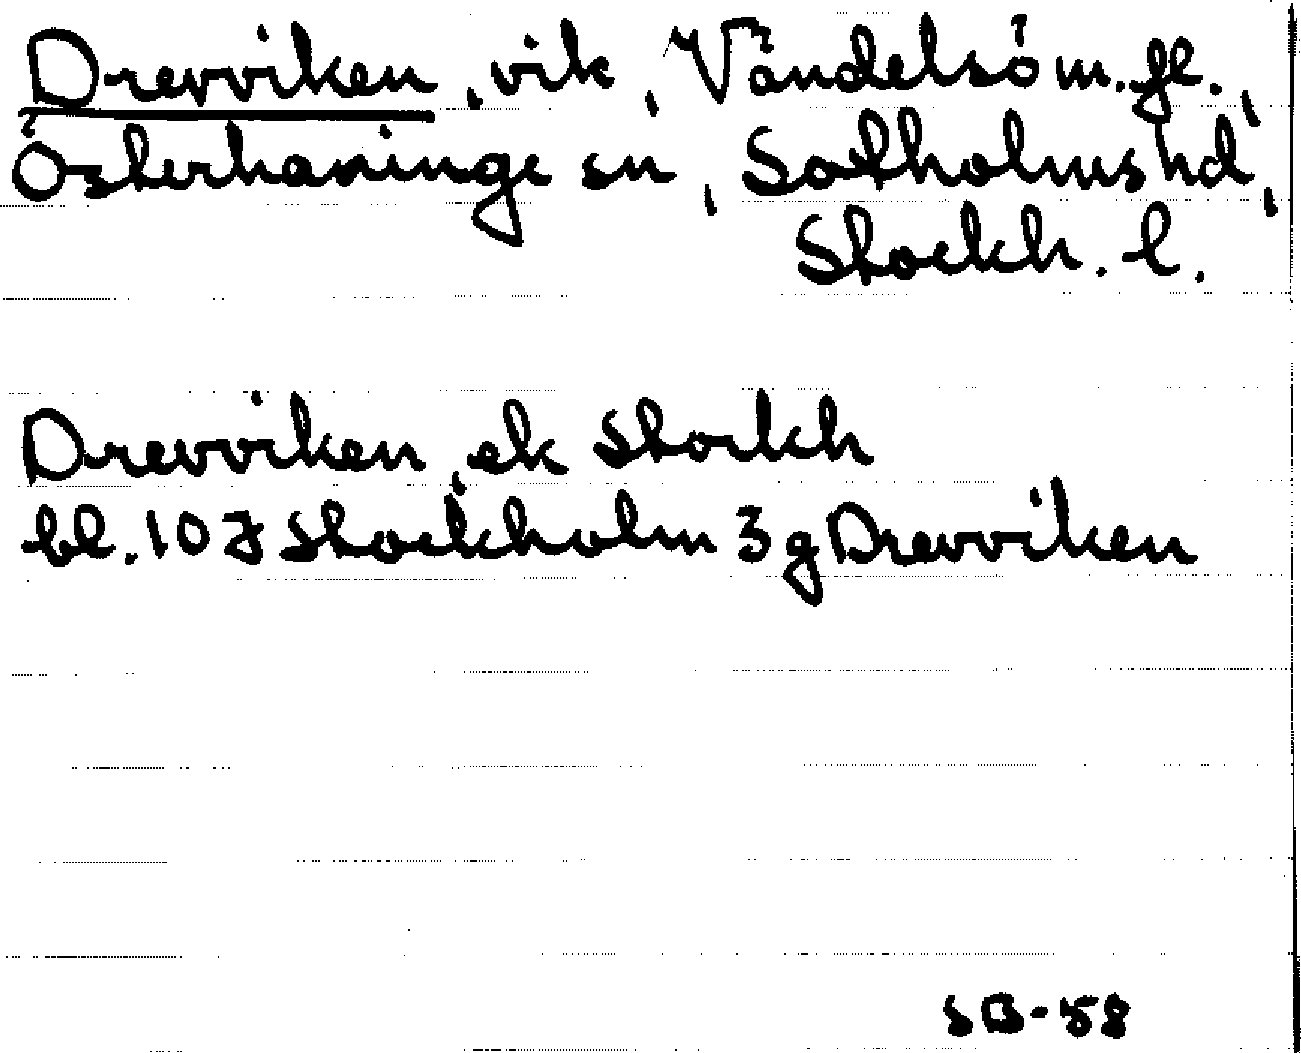 Drevviken, vik, Vändelsö m. fl.,
Österhaninge sn, Sotholms hd,
Stockh. l.
Drevviken, ek Stockh
bl. 10 J Stockholm 3 g Drevviken
SB-58